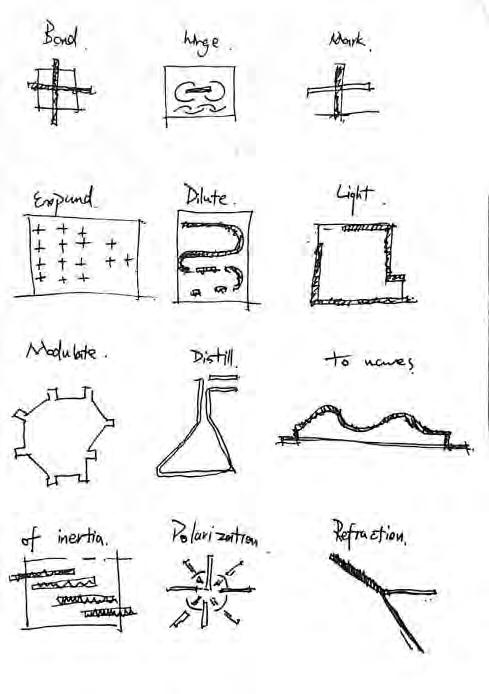 Bond.
hinge.
Mark.
Expand
Dilute.
Light.
Modulate.
Distill.
To waves
of inertia.
Polarization
Refraction.